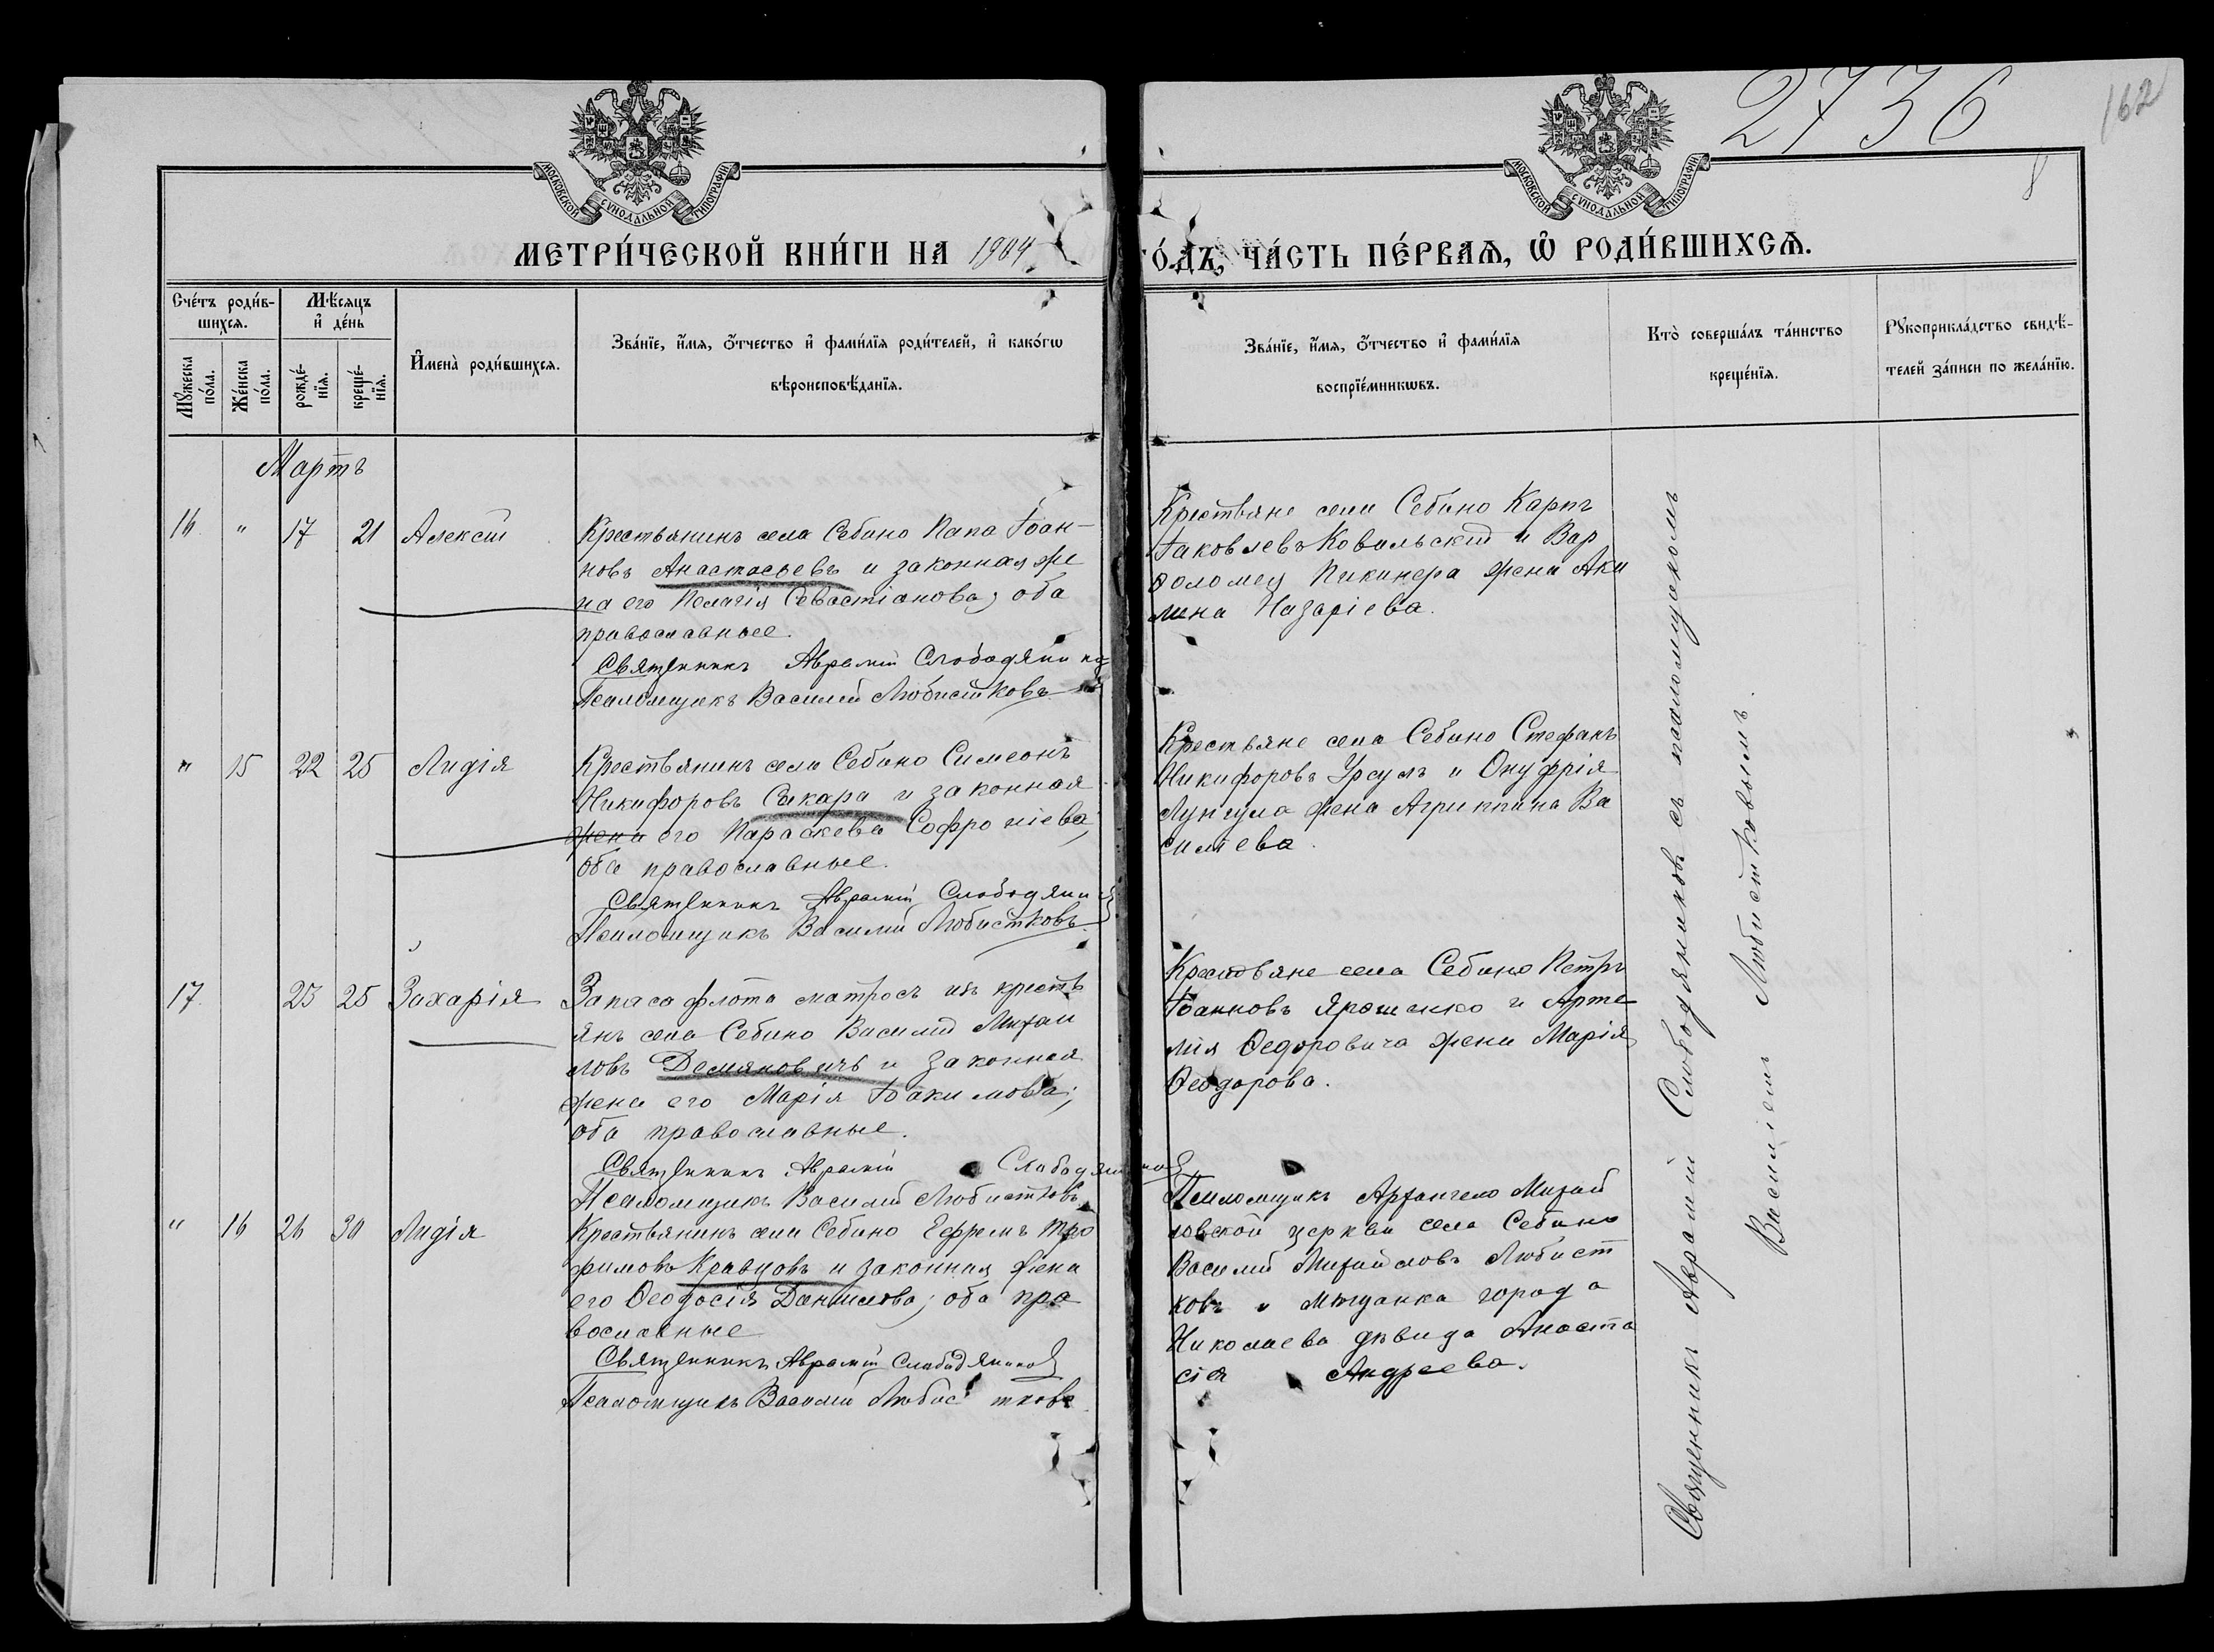 2736
162
8
МОСКОВСКОЙ СѴНОДАЛЬНОЙ ТИПОГРАФІИ
МОСКОВСКОЙ СѴНОДАЛЬНОЙ ТИПОГРАФІИ
МЕТРИ́ЧЕСКОЙ КНИ́ГИ НА 1904
ГО́ДЪ, ЧА́СТЬ ПЕ́РВАѦ, Ѡ҆ РОДИ́ВШИХСѦ.
Сче́тъ роди́в-
шихсѧ.
Мꙋ́жеска по́ла.
Же́нска по́ла.
Мѣ́сѧцъ
и҆ де́нь
рожде́-
нїѧ.
креще́-
нїѧ.
И҆мена̀ роди́вшихсѧ.
Зва́нїе, и҆́мѧ, ѻ҆́тчество и҆ фами́лїѧ роди́телей, и҆ како́гѡ
вѣроисповѣ́данїѧ.
Зва́нїе, и҆́мѧ, ѻ҆́тчество и҆ фами́лїѧ
воспрїе́мникѡвъ.
Кто̀ соверша́лъ та́инство
креще́нїѧ.
Рꙋкоприкла́дство свидѣ́-
телей за́писи по жела́нїю.
Мартъ
16 " 17 21 Алексій
Крестьянинъ села Себино Папа Іоан-
новъ Анастасьевъ и законная же
на его Пелагія Севастіанова; оба
православные.
Священникъ Аврамій Слободяников
Псаломщикъ Василій Любистковъ
Крестьяне села Себино Карпъ
Іаковлевъ Ковальскій и Вар
ѳоломея Пикинера жена Аки
лина Назаріева.
" 15 22 25 Лидія
Крестьянинъ села Себино Симеонъ
Никифоровъ Сакара и законная
жена его Параскева Софроніева;
оба православные.
Священникъ Аврамій Слободяник
Псаломщикъ Василій Любистковъ
Крестьяне села Себино Стефанъ
Никифоровъ Урсулъ и Онуфрія
Лунгула жена Агриппина Ва
сильева.
17. 23 25 Захарія
Запаса флота матросъ изъ кресть
янъ села Себино Василій Михаи
ловъ Демяновичъ и законная
жена его Марія Іоакимова;
оба православные.
Священникъ Аврамій Слободяников
Псаломщикъ Василій Любистковъ
Крестьяне села Себино Петръ
Іоанновъ Ярошенко и Арте
мія Ѳедоровича жена Марія
Ѳеодорова.
" 16 26 30 Лидія
Крестьянинъ села Себино Ефремъ Тро
фимовъ Кравцовъ и законная жена
его Ѳеодосія Даніилова; оба пра
вославные
Священникъ Аврамій Слободяников
Псаломщикъ Василій Любистковъ
Псаломщикъ Архангело Михай
ловской церкви села Себино
Василій Михайловъ Любист
ковъ и мѣщанка города
Николаева дѣвица Анаста
сія Андреева.
Священникъ Аврамій Слободяниковъ съ псаломщикомъ
Василіемъ Любистковымъ.